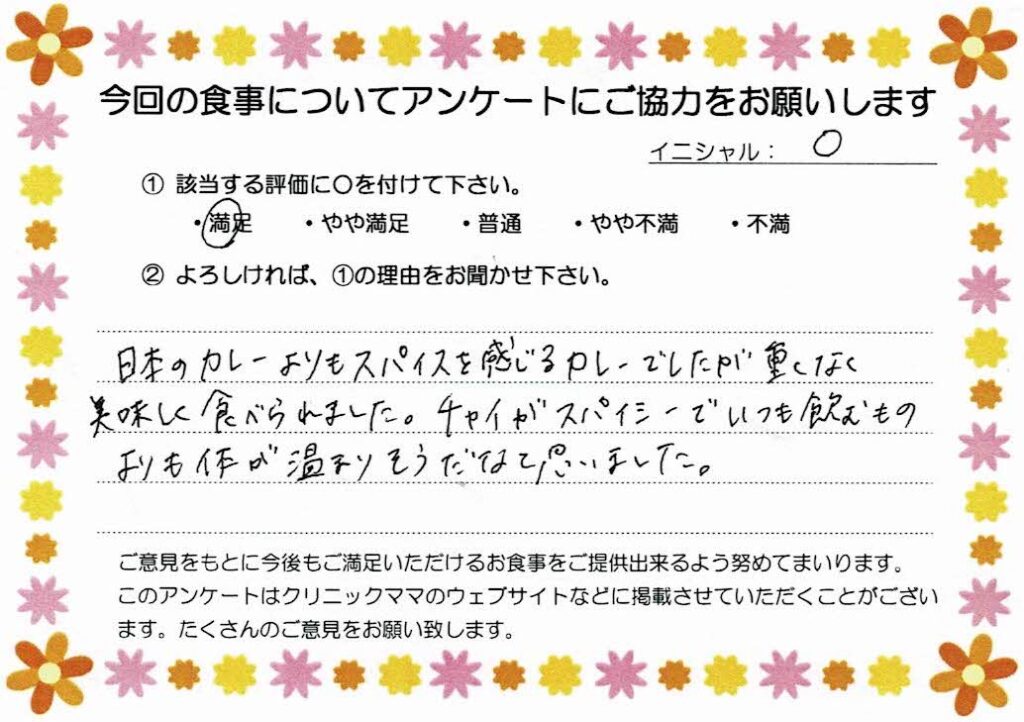 今回の食事についてアンケートにご協力をお願いします
イニシャル： O
① 該当する評価に〇を付けて下さい。
・満足 ・やや満足 ・普通 ・やや不満 ・不満
② よろしければ、①の理由をお聞かせ下さい。
日本のカレーよりもスパイスを感じるカレーでしたが重くなく
美味しく食べられました。チャイがスパイシーでいつも飲むもの
よりも体が温まりそうだなと思いました。
ご意見をもとに今後もご満足いただけるお食事をご提供出来るよう努めてまいります。
このアンケートはクリニックママのウェブサイトなどに掲載させていただくことがござい
ます。たくさんのご意見をお願い致します。